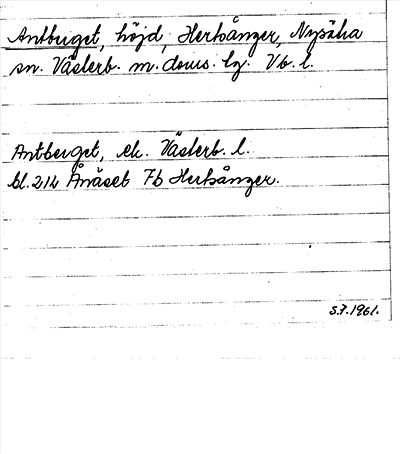 Antberget, höjd, Hertsånger, Nysätra
sn. Västerb. m. doms. bz. Vb. l.
Antberget, ek. Västerb. l.
bl. 214 Ånäset 7b Hertsånger.
S.J. 1961.